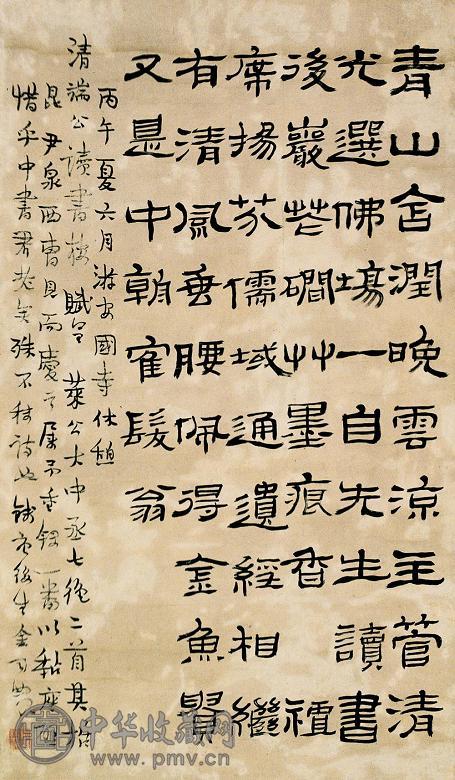 青山含潤晚雲涼主管清
光選佛場一自先生讀書
後巖花磵艸墨痕香禪
席揚芬儒域通遺經相繼
有清風垂腰佩得金魚
又是中朝寉髮翁
丙午夏六月游安國寺休憩
清端公讀書樓賦呈 萊公大中丞七絕二首其
昆尹泉西曹見而慶之屬不重録一番以黏座
惜乎中書君老矣殊不称詩也錢唐後生金
中华收藏网
www.pmv.cn